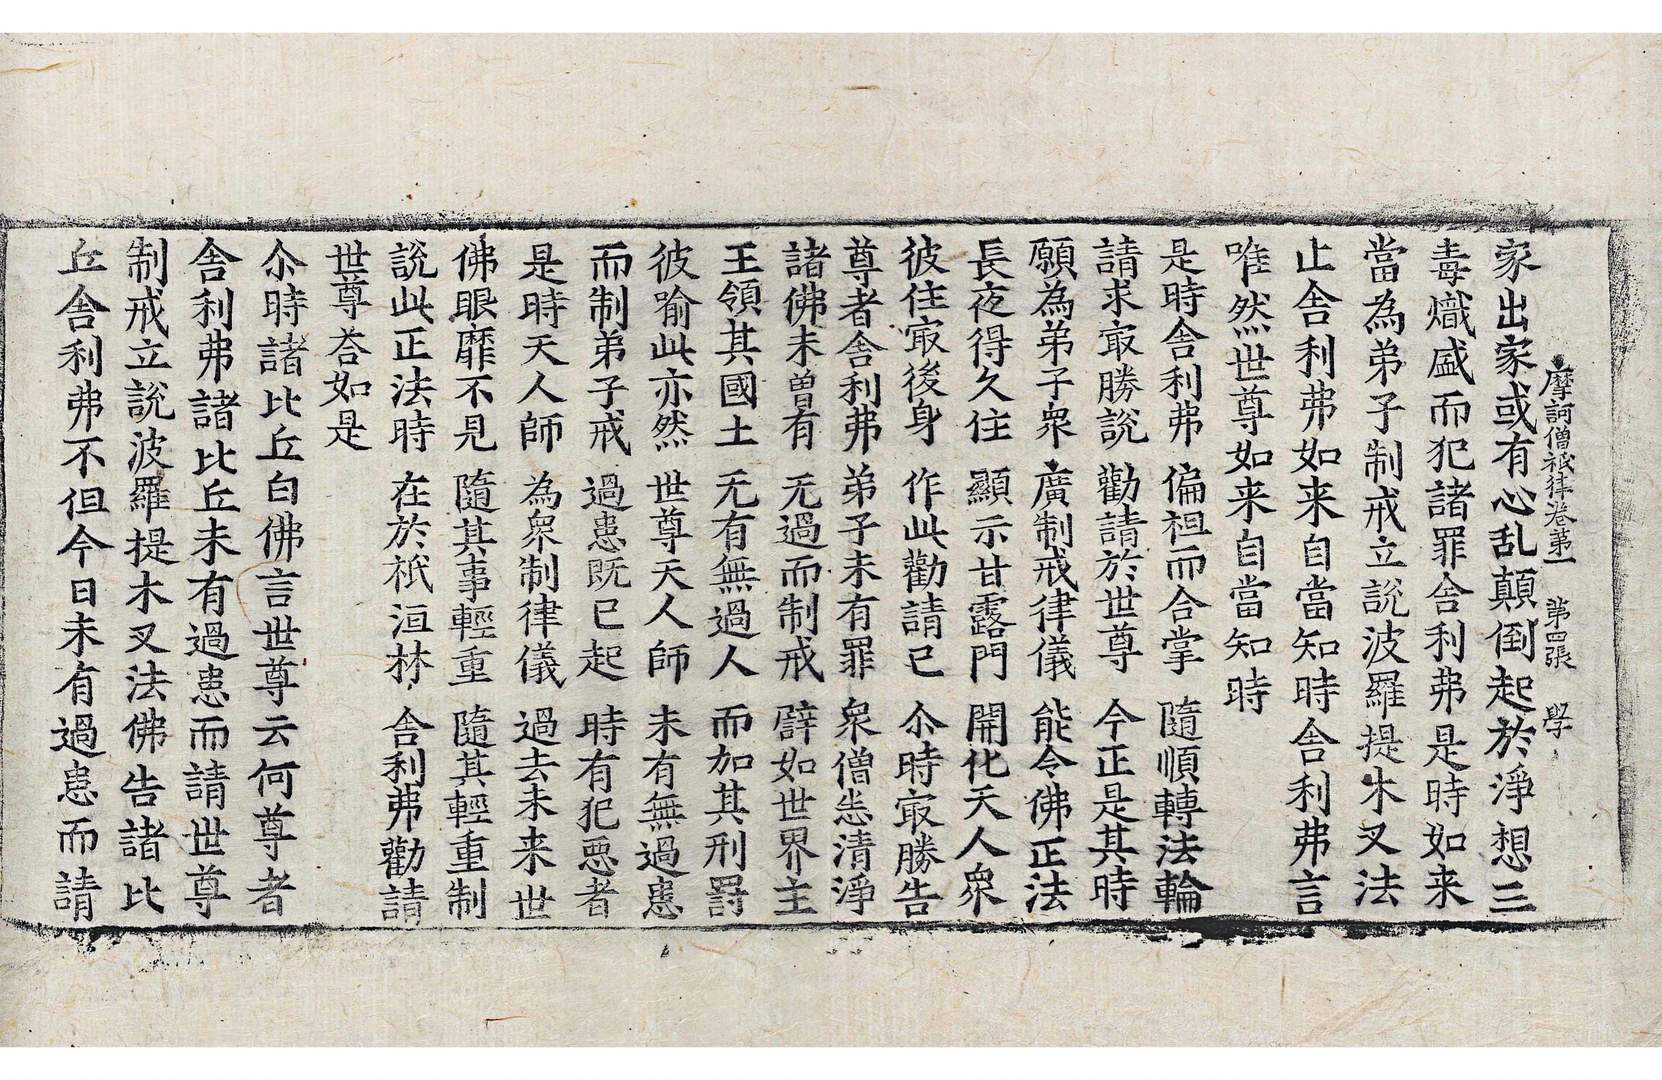 摩訶僧祇律卷第一 第四張 學
家出家或有心乱顛倒起於淨想三
毒熾盛而犯諸罪舍利弗是時如来
當為弟子制戒立說波羅提木叉法
止舍利弗如来自當知時舍利弗言
唯然世尊如来自當知時
是時舍利弗 偏袒而合掌 隨順轉法輪
請求㝡勝說 勸請於世尊 今正是其時
願為弟子衆 廣制戒律儀 能令佛正法
長夜得久住 顯示甘露門 開化天人衆
彼住㝡後身 作此勸請已 尒時㝡勝告
尊者舍利弗 弟子未有罪 衆僧悉清淨
諸佛未曽有 无過而制戒 辟如世界主
王領其國土 无有無過人 而加其刑罸
彼喻此亦然 世尊天人師 未有無過患
而制弟子戒 過患既已起 時有犯惡者
是時天人師 為衆制律儀 過去未来世
佛眼靡不見 隨其事輕重 隨其輕重制
說此正法時 在於祇洹林 舍利弗勸請
世尊荅如是
尒時諸比丘白佛言世尊云何尊者
舍利弗諸比丘未有過患而請世尊
制戒立說波羅提木叉法佛告諸比
丘舍利弗不但今日未有過患而請